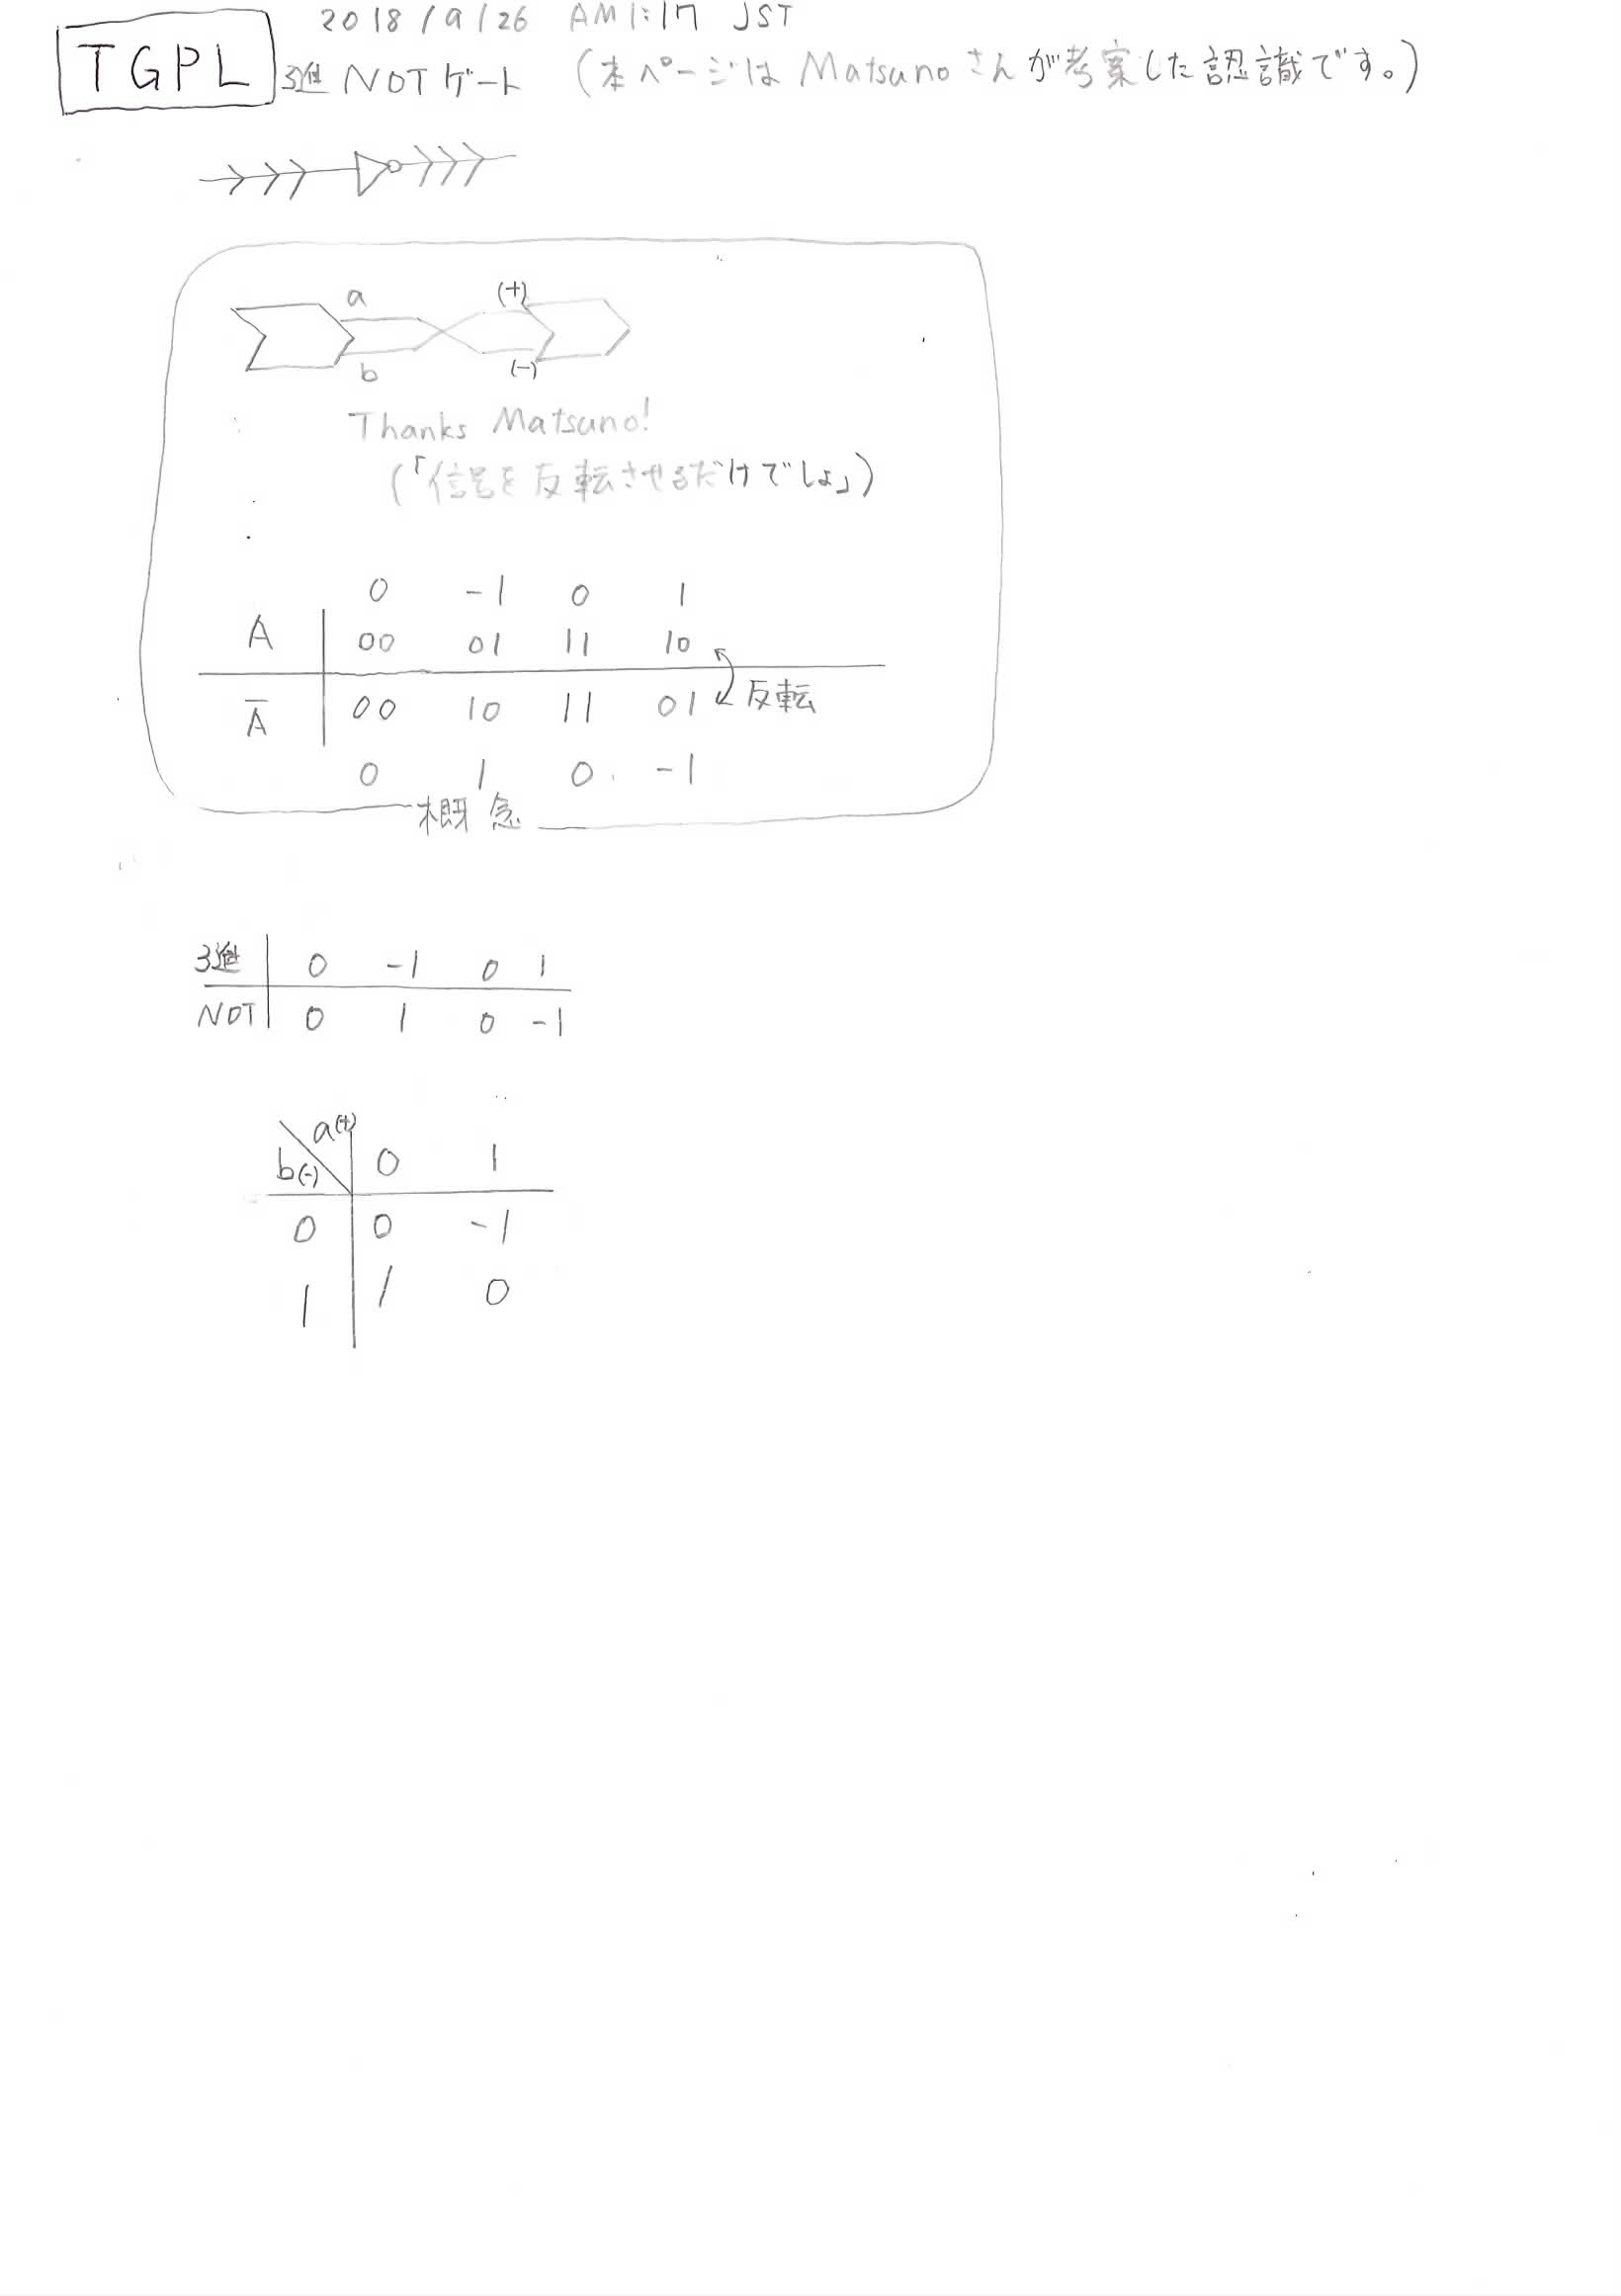 2018/9/26 AM1:17 JST
TGPL 3進NOTゲート (本ページはMatsunoさんが考案した認識です。)
a (+)
b (-)
Thanks Matsuno!
(「信号を反転させるだけでしょ」)
0 -1 0 1
A 00 01 11 10
反転
A̅ 00 10 11 01
0 1 0 -1
概念
3進 0 -1 0 1
NOT 0 1 0 -1
a(+)
b(-) 0 1
0 0 -1
1 1 0